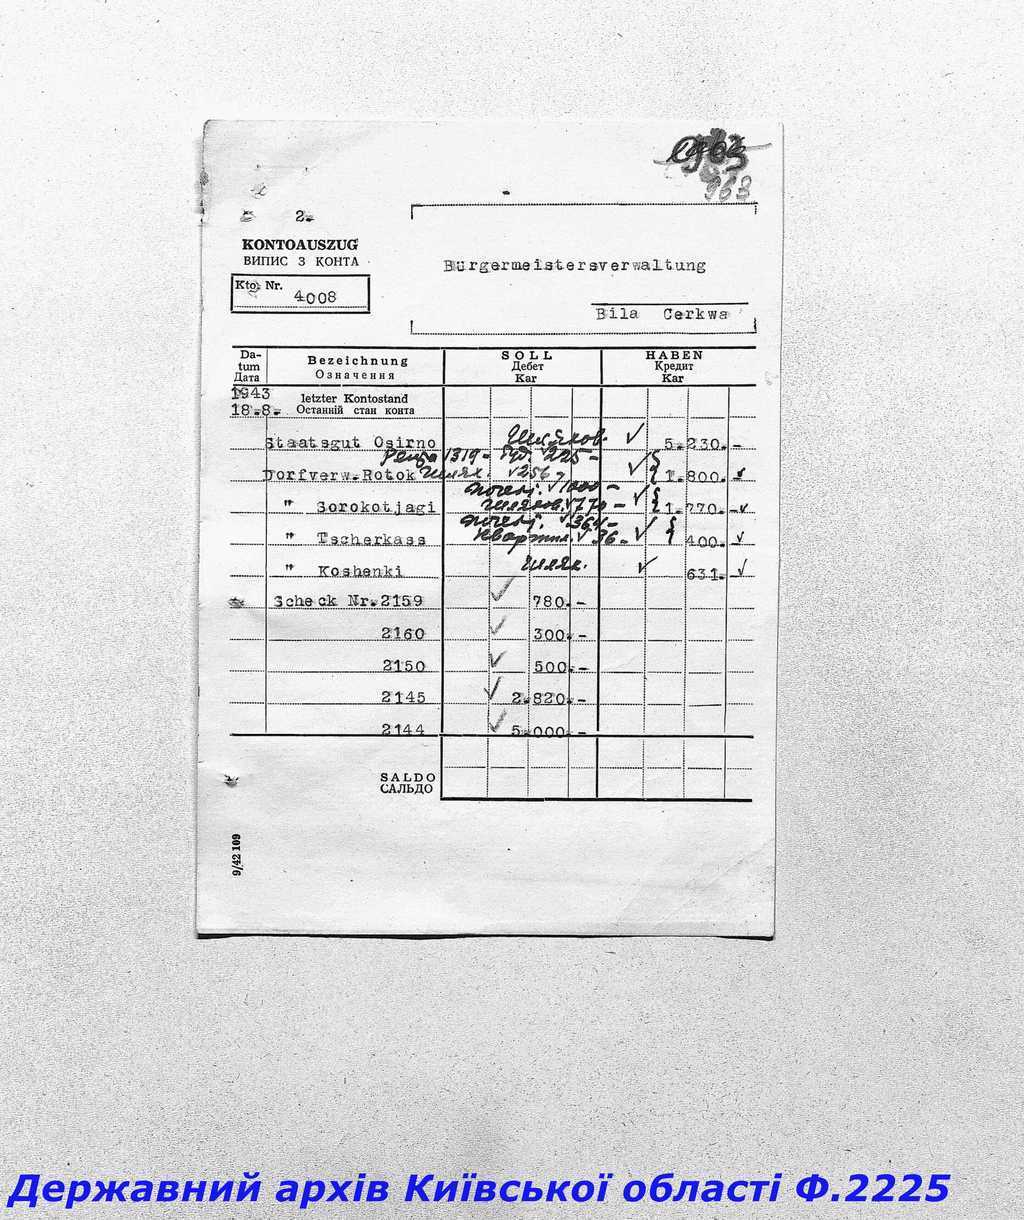 963
2.
KONTOAUSZUG
ВИПИС З КОНТА
Kto. Nr. 4008
Bürgermeistersverwaltung
Bila Cerkwa
Da-tum Дата Bezeichnung Означення SOLL Дебет Kar HABEN Кредит Kar
1943
18.8. letzter Kontostand
Останній стан конта
Staatsgut Osirno Шляхов. 5.230.-
Рента 1319- 225-
Dorfverw.Rotok шлях. 256- 1.800.-
1000-
" Sorokotjagi шляхов. 770- 1.770.-
364-
" Tscherkass 36.- 400.-
" Koshenki шлях. 631.-
Scheck Nr.2159 780.-
2160 300.-
2150 500.-
2145 2.820.-
2144 5.000.-
SALDO
САЛЬДО
9/42 109
Державний архів Київської області Ф.2225